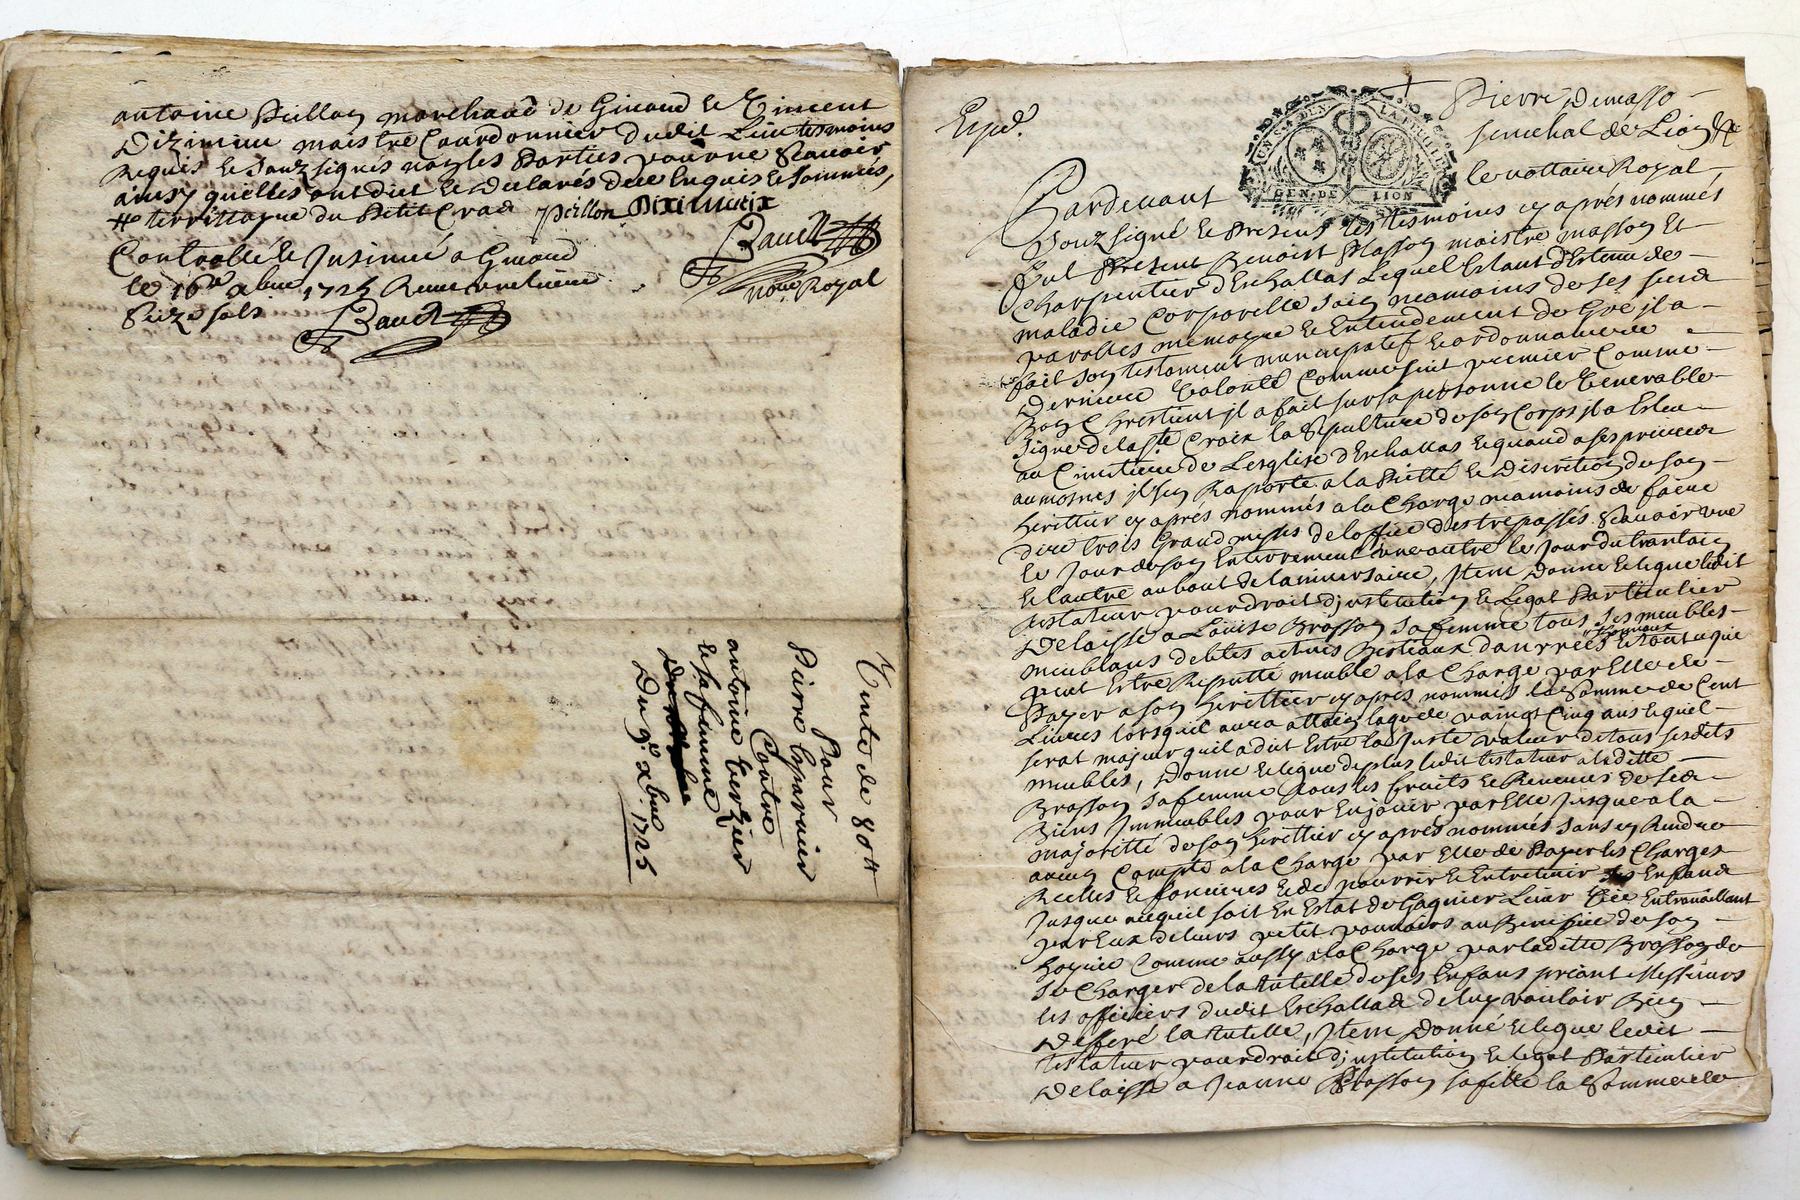 antoine Peillon marchand de Givord & Vincent
Diziminu maistre Courdonnier dudit Lieu tesmoins
Requis & souzsignés non les Parties pour ne Scavoir
ainsy quelles ont dict & declarés de ce Enquis & sommés,
territtoyre du Petit Peillon
Controllé & Insinué a Givord
le 16e xbre 1725 Receu
Seize sols
Baudt
Baudt
nore Royal
Vente de 80 tt
Pour
Pierre
Contre
antoine Verzier
& sa femme
Du 9e xbre 1725
Exped.
GEN. DE LION
Pierre Demasso
senechal de Lion &c
Pardevant le nottaire Royal
souzsigné & Presens les tesmoins cy aprés nommés
fut Present Benoist Plasson maistre masson Et
Charpentier d'Eschallas Lequel Estant d'Etenu de
maladie Corporelle sain neamoins de ses sens
parolles memoyre & Entendement de Gré jl a
fait son testament nuncupatif & ordonnance de
derniere Volonté Comme suit premier Comme
Bon Chrestient jl a fait sur sa personne le Venerable
signe de la ste Croix la Sepulture de son Corps jl a Esleu
au Cimitiere de Lesglise d'Eschallas & quand a ses
aumosnes jl s'en Raporte a la Piétté & Discretion de son
herittier cy aprés nommés a la Charge neamoins de faire
dire trois Grand messes de loffice des trepassés Scavoir une
le Jour de son Enterrement une autre le Jour du trantain
& lautre au bout de lanniversaire, Item Donne & legue ledit
testateur pour droit d'institution & Legat Particulier
Delaisse a Louise Brosson sa femme tous ses meubles
meublans debtes actives Bestiaux danrrées & tout ce qui
peut Estre Reputté meuble a la Charge par Elle de
Payer a son herittier cy aprés nommés la Somme de Cent
Livres lorsquil aura attein lage de vaingt Cinq ans & quel
serat majeur quil a dict Estre la Juste valeur de tous sesdits
meubles, Donne & legue de plus ledit testateur a laditte
Brosson sa femme tous les fruits & Revenus de ses
Biens Immeubles pour En jouir par Elle Jusque a la
majoritté de son herittier cy aprés nommés sans en Rendre
aucun Compte a la Charge par Elle de Payer les Charges
Reelles & foncieres & de nourrir & Entretenir ses Enfans
Jusque a Estat de Gagnier Leur Vie En travaillant
par Eux de leurs petit pouvoirs au Benefice de son
hoyrie Comme aussy a la Charge par ladite Brosson de
se Charger de la tutelle de ses Enfans priant Messieurs
les officiers dudit Eschallas de luy vouloir Bien
Deffere la tutelle, Item Donne & legue ledit
testateur pour droit d'institution & legat Particulier
Delaisse a Jeanne Plasson sa fille la Somme de